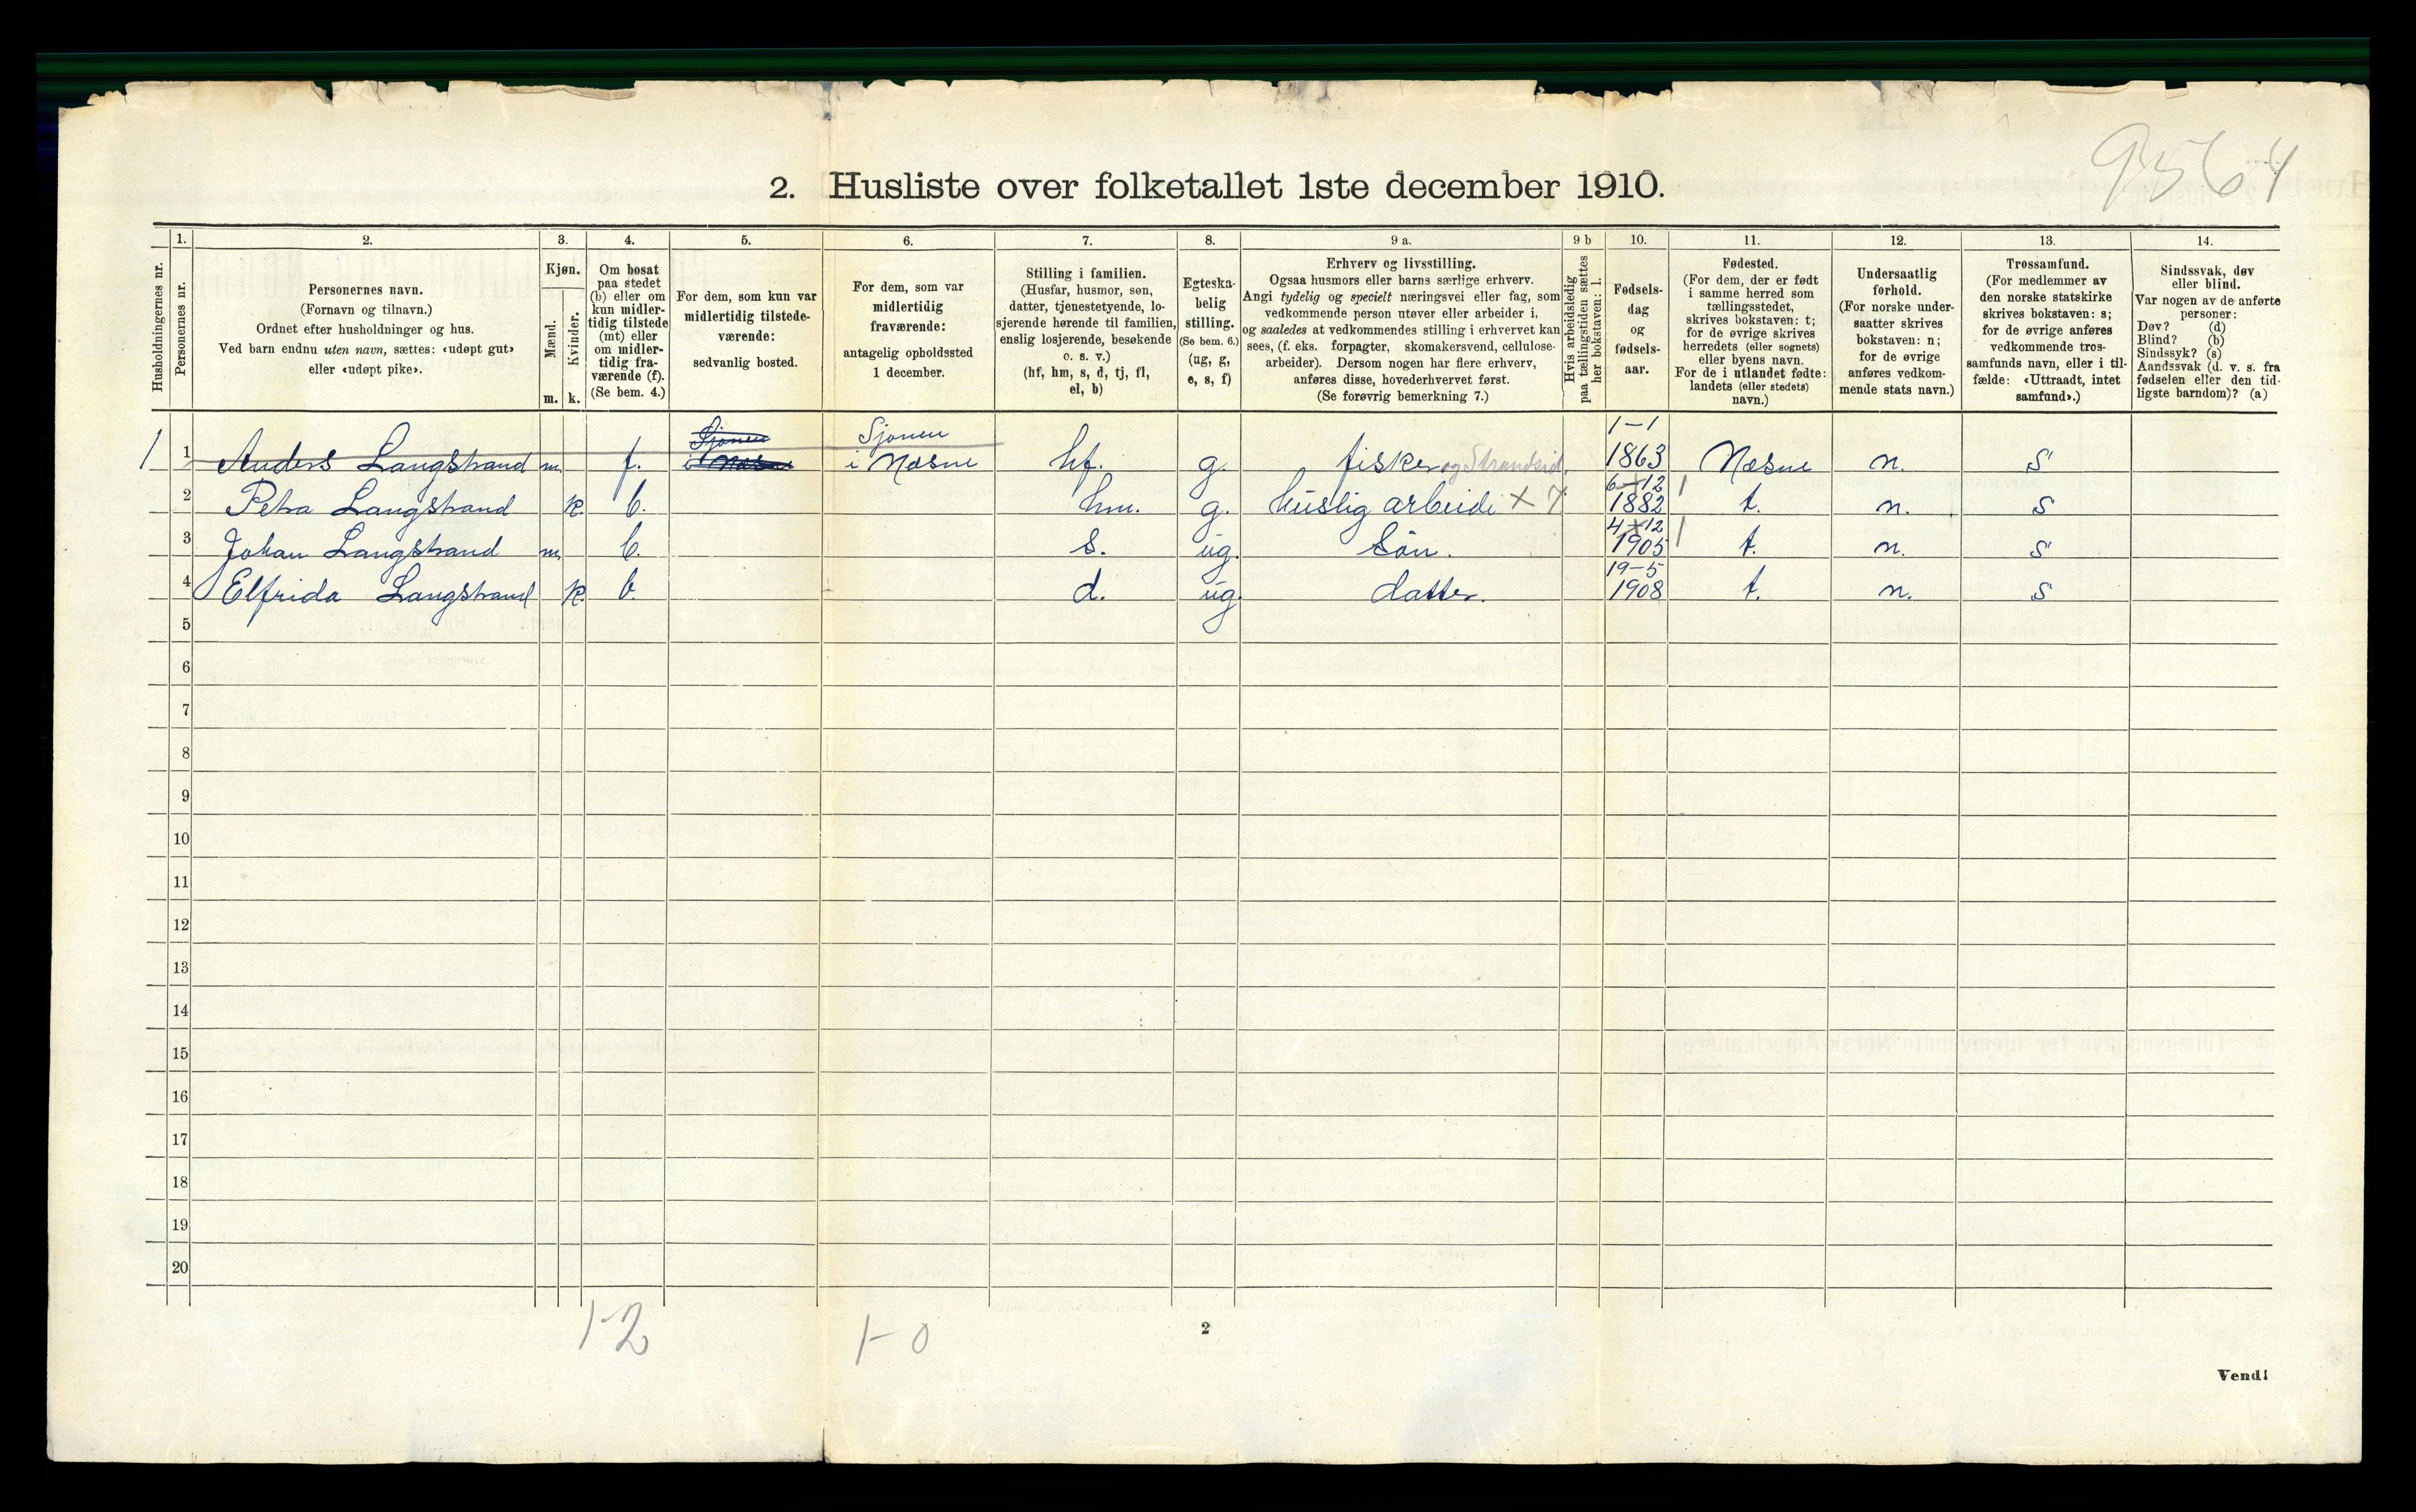 9564
2. Husliste over folketallet 1ste december 1910.
Husholdningernes nr.
1.
Personernes nr.
2.
Personernes navn.
(Fornavn og tilnavn.)
Ordnet efter husholdninger og hus.
Ved barn endnu uten navn, sættes: «udøpt gut»
eller «udøpt pike».
3.
Kjøn.
Mænd.
Kvinder.
m. k.
4.
Om bosat
paa stedet
(b) eller om
kun midler-
tidig tilstede
(mt) eller
om midler-
tidig fra-
værende (f).
(Se bem. 4.)
5.
For dem, som kun var
midlertidig tilstede-
værende:
sedvanlig bosted.
6.
For dem, som var
midlertidig
fraværende:
antagelig opholdssted
1 december.
7.
Stilling i familien.
(Husfar, husmor, søn,
datter, tjenestetyende, lo-
sjerende hørende til familien,
enslig losjerende, besøkende
o. s. v.)
(hf, hm, s, d, tj, fl,
el, b)
8.
Egteska-
belig
stilling.
(Se bem. 6.)
(ug, g,
e, s, f)
9 a.
Erhverv og livsstilling.
Ogsaa husmors eller barns særlige erhverv.
Angi tydelig og specielt næringsvei eller fag, som
vedkommende person utøver eller arbeider i,
og saaledes at vedkommendes stilling i erhvervet kan
sees, (f. eks. forpagter, skomakersvend, cellulose-
arbeider). Dersom nogen har flere erhverv,
anføres disse, hovederhvervet først.
(Se forøvrig bemerkning 7.)
9 b
Hvis arbeidsledig
paa tællingstiden sættes
her bokstaven: l.
10.
Fødsels-
dag
og
fødsels-
aar.
11.
Fødested.
(For dem, der er født
i samme herred som
tællingsstedet,
skrives bokstaven: t;
for de øvrige skrives
herredets (eller sognets)
eller byens navn.
For de i utlandet fødte:
landets (eller stedets)
navn.)
12.
Undersaatlig
forhold.
(For norske under-
saatter skrives
bokstaven: n;
for de øvrige
anføres vedkom-
mende stats navn.)
13.
Trossamfund.
(For medlemmer av
den norske statskirke
skrives bokstaven: s;
for de øvrige anføres
vedkommende tros-
samfunds navn, eller i til-
fælde: «Uttraadt, intet
samfund».)
14.
Sindssvak, døv
eller blind.
Var nogen av de anførte
personer:
Døv? (d)
Blind? (b)
Sindssyk? (s)
Aandssvak (d. v. s. fra
fødselen eller den tid-
ligste barndom)? (a)
Sjonen Sjonen 1-1
1 1 Anders Langstrand m. f. i Næsne i Næsne hf. g. fisker og Strandsid. 1863 Næsne n. s
6-12
2 Petra Langstrand k. b. hm. g. huslig arbeide X 7 1882 t. n. s
4-12
3 Johan Langstrand m. b. s. ug. Søn. 1905 t. n. s
19-5
4 Elfrida Langstrand k. b. d. ug. datter. 1908 t. n. s
5
6
7
8
9
10
11
12
13
14
15
16
17
18
19
20
1-2 1-0
2
Vend!